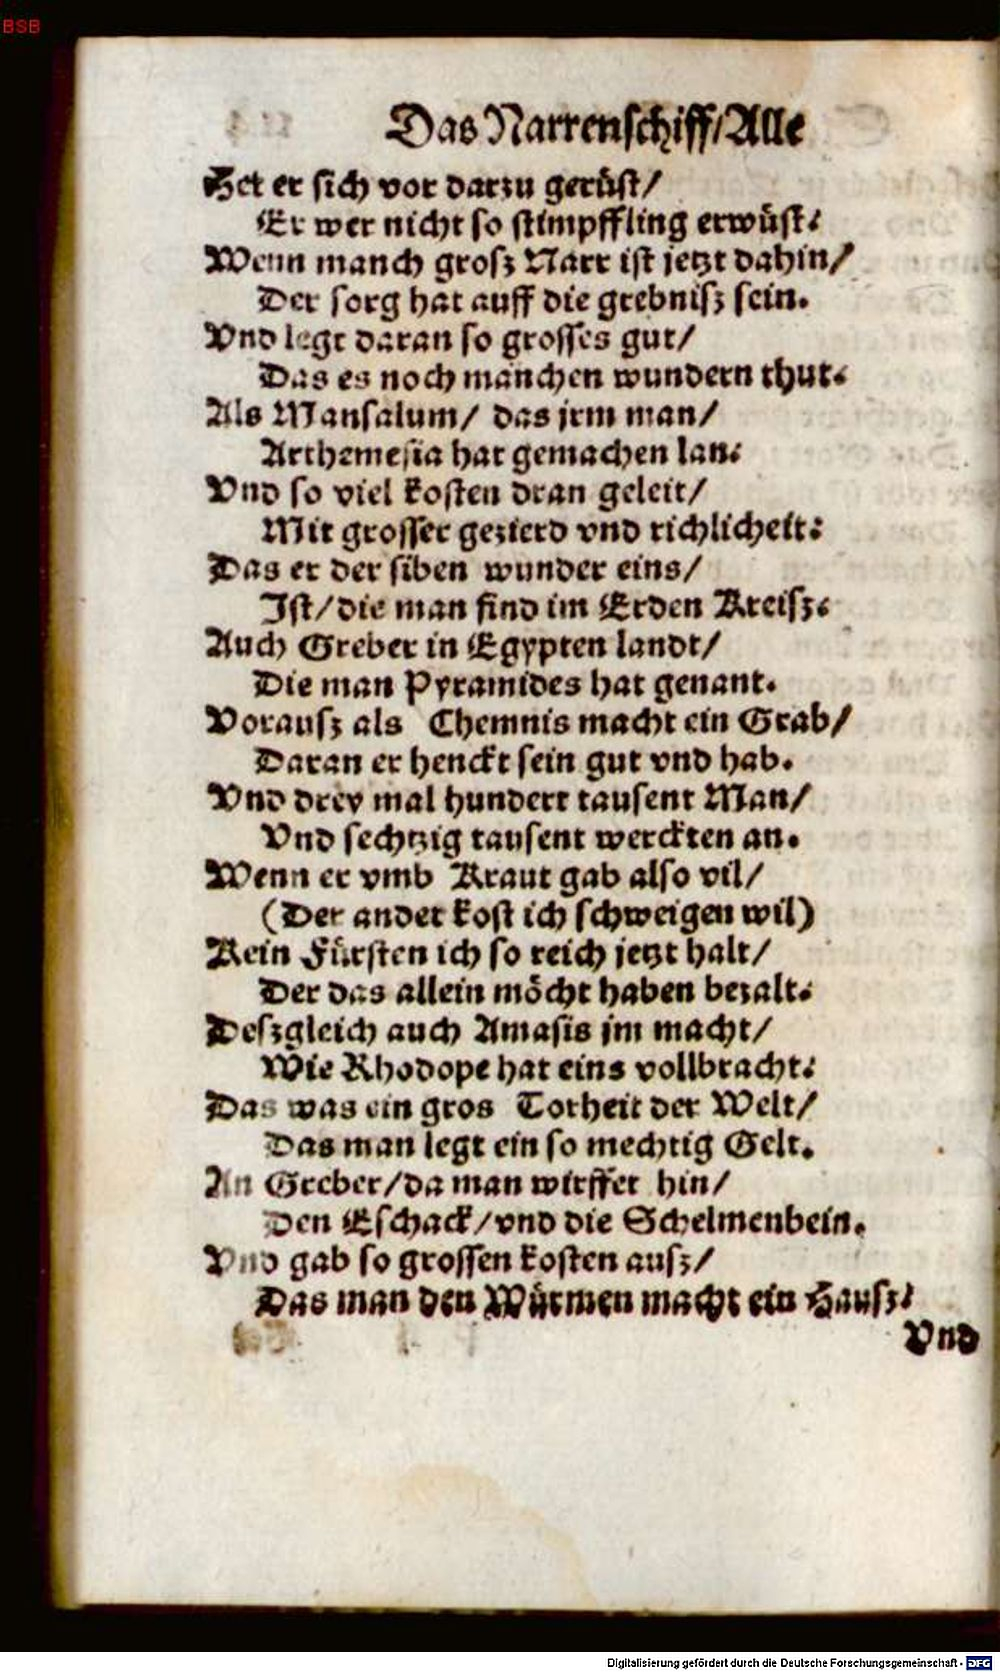 BSB
Das Narrenschiff/Alle
Het er sich vor darzu gerüst/
Er wer nicht so stimpffling erwüst.
Wenn manch grosz Narr ist jetzt dahin/
Der sorg hat auff die grebnisz sein.
Vnd legt daran so grosses gut/
Das es noch manchen wundern thut.
Als Mansalum/ das jrm man/
Arthemesia hat gemachen lan.
Vnd so viel kosten dran geleit/
Mit grosser gezierd vnd richlicheit.
Das er der siben wunder eins/
Ist/die man find im Erden Kreisz.
Auch Greber in Egypten landt/
Die man Pyramides hat genant.
Vorausz als Chemnis macht ein Grab/
Daran er henckt sein gut vnd hab.
Vnd drey mal hundert tausent Man/
Vnd sechtzig tausent werckten an.
Wenn er vmb Kraut gab also vil/
(Der ander kost ich schweigen wil)
Kein Fürsten ich so reich jetzt halt/
Der das allein möcht haben bezalt.
Deszgleich auch Amasis jm macht/
Wie Rhodope hat eins vollbracht.
Das was ein gros Torheit der Welt/
Das man legt ein so mechtig Gelt.
An Greber/da man wirffet hin/
Den Eschack/vnd die Schelmenbein.
Vnd gab so grossen kosten ausz/
Das man den Würmen macht ein Hausz.
Vnd
Digitalisierung gefördert durch die Deutsche Forschungsgemeinschaft - DFG